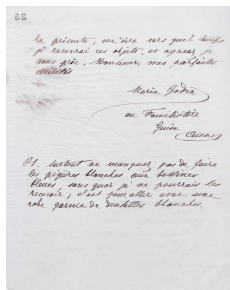 la présente, me dire vers quel temps
je recevrai ces objets, et agréez je
vous prie, Monsieur, mes parfaites
civilités
Marie Godin
au Familistère
Guise
Aisne
PS. surtout ne manquez pas de faire
les piqûres blanches aux bottines
bleues sans quoi je ne pourrais les
recevoir, c'est pour aller avec une
robe garnie de dentelles blanches.